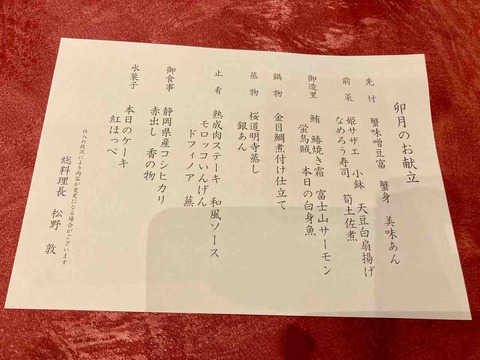 卯月のお献立
先付 蟹味噌豆富 蟹身 美味あん
前菜 姫サザエ 小鉢 天豆白扇揚げ
なめろう寿司 筍土佐煮
御造里 鮪 鰆焼き霜 富士山サーモン
蛍烏賊 本日の白身魚
鍋物 金目鯛煮付け仕立て
蒸物 桜道明寺蒸し
銀あん
止肴 熟成肉ステーキ 和風ソース
モロッコいんげん
ドフィノア 蕪
御食事 静岡県産コシヒカリ
赤出し 香の物
水菓子 本日のケーキ
紅ほっぺ
仕入れ状況により内容が変更になる場合がございます
総料理長 松野 敦